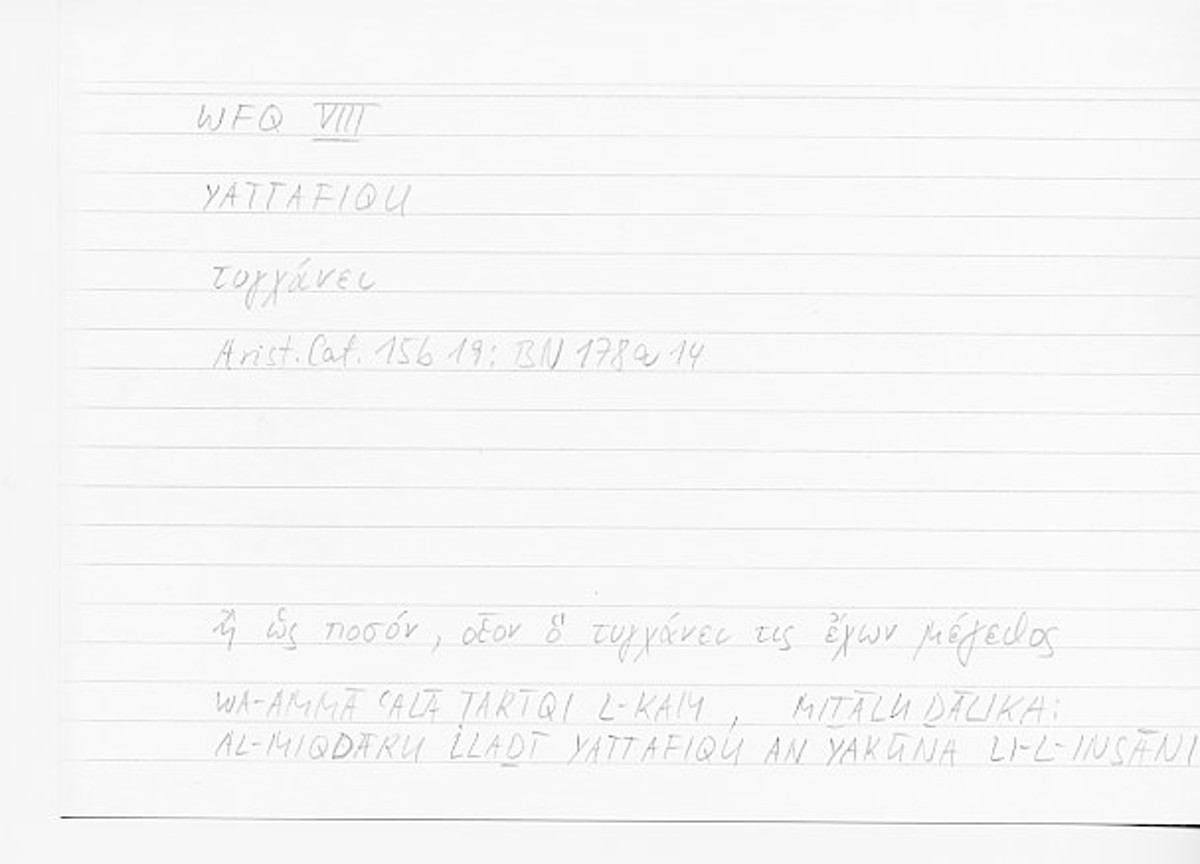 WFQ VIII
YATTAFIQU
τυγχάνει
Arist. Cat. 15b 19: BN 178a 14
ἢ ὡς ποσόν, οἷον ὃ τυγχάνει τις ἔχων μέγεθος
WA-AMMĀ ʿALĀ ṬARĪQI L-KAM, MIṮĀLU ḎĀLIKA:
AL-MIQDĀRU LLAḎĪ YATTAFIQU AN YAKŪNA LI-L-INSĀNI